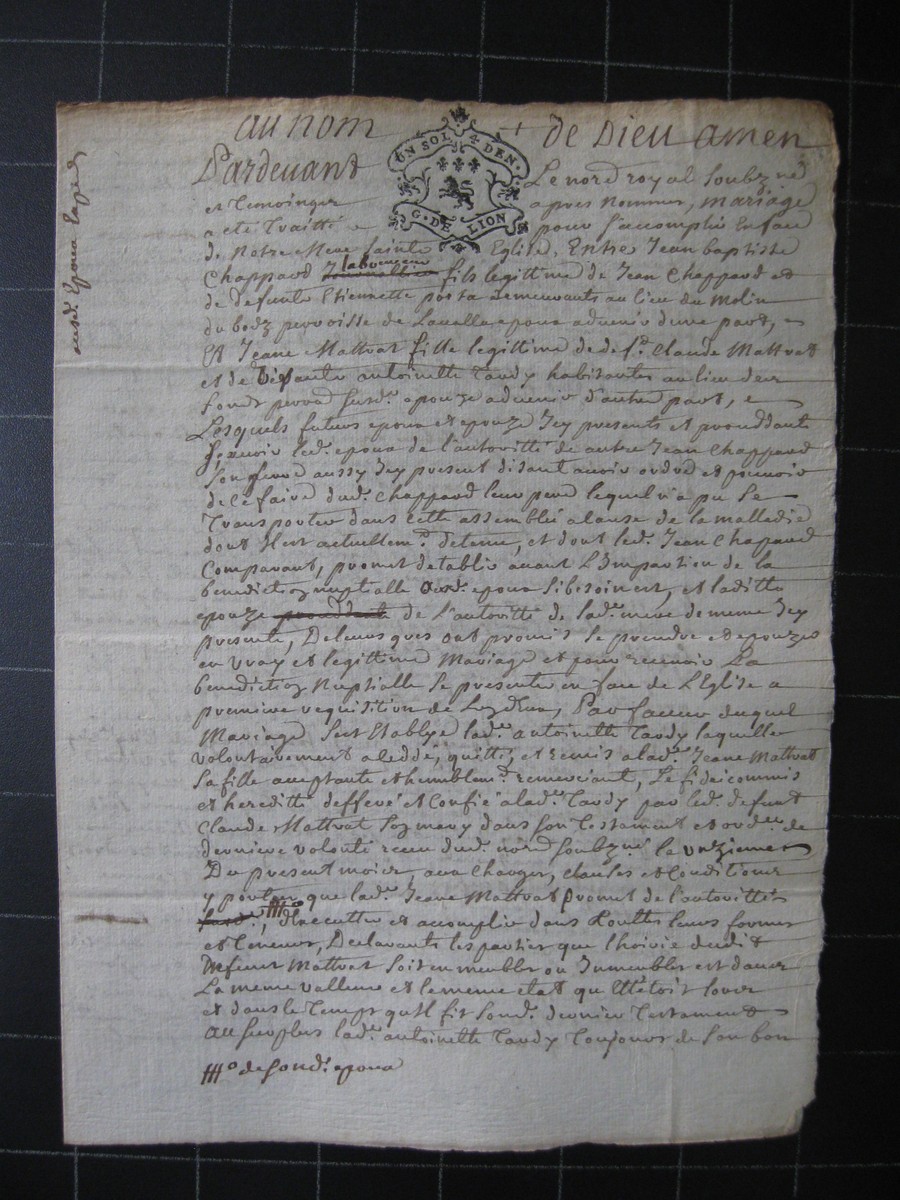 au nom de Dieu amen
UN SOL 4 DEN.
G. DE LION
Pardevant Le nore royal Soubzne
et Temoingz apres nommez, mariage
a été Traitté pour S'accomplir En face
de Notre Mere Sainte Eglise, Entre Jean baptiste
Chappard laboureur fils legittime de Jean Chappard et
de defunte Etiennette demeurants au lieu du Molin
du parroisse de Lavalla epoux advenir d'une part,
Et Jeane Mattrat fille legittime de def.t Claude Mattrat
et de antoinette Tardy habitantes au lieu des
fonds susd. epouze advenir d'autre part,
Lesquels futurs epoux et epouze Jcy presents et proceddants
sçavoir led. epoux de l'autoritté de autre Jean Chappard
Son frere aussy Jcy present disant avoir ordre et pouvoir
de ce faire dud. Chappard leur pere lequel n'a pu Se
Transporter dans cette assemblée a cause de la malladie
dont Il est actuellem.t detenu, et dont led. Jean Chapard
Comparant, promet d'etablir avant L'Impartion de la
benediction nuptialle ausd. epoux Si besoin est, et laditte
epouze de L'autoritté de lad. mere de meme Jcy
presente, De leurs grés ont promis Se prendre et epouzer
en vray et legittime Mariage et pour recevoir La
benediction Nuptialle Se presenter en face de L'Eglise a
premiere requisition de L'un d'eux, Par faveur duquel
Mariage S'est Etablye lad. antoinette Tardy laquelle
volontairement a ceddé, quitté, et remis a lad. Jeane Mattrat
Sa fille acceptante et humblem.t remerciant, Le fideicommis
et heredité defferé et Confié a lad. Tardy par led. defunt
Claude Mattrat Son mary dans Son Testament et ord.re de
derniere volonté receu dud. nore Soubzné le unzieme
Du present mois, aux Charges, clauses et Conditions
y portées que lad. Jeane Mattrat promet de l'autorittés
d'Executter et accomplir dans Touttes leurs formes
et Teneurs, Declarants les parties que l'hoirie dudit
Defunt Mattrat Soit en meubles ou Jmmeubles est dans
La meme valleur et le meme etat qu'Elle etoit Lors
et dans le Temps qu'Il fit Sond. dernier Testament
Au Surplus lad. antoinette Tardy Toujours de Son bon
de Sond. epoux